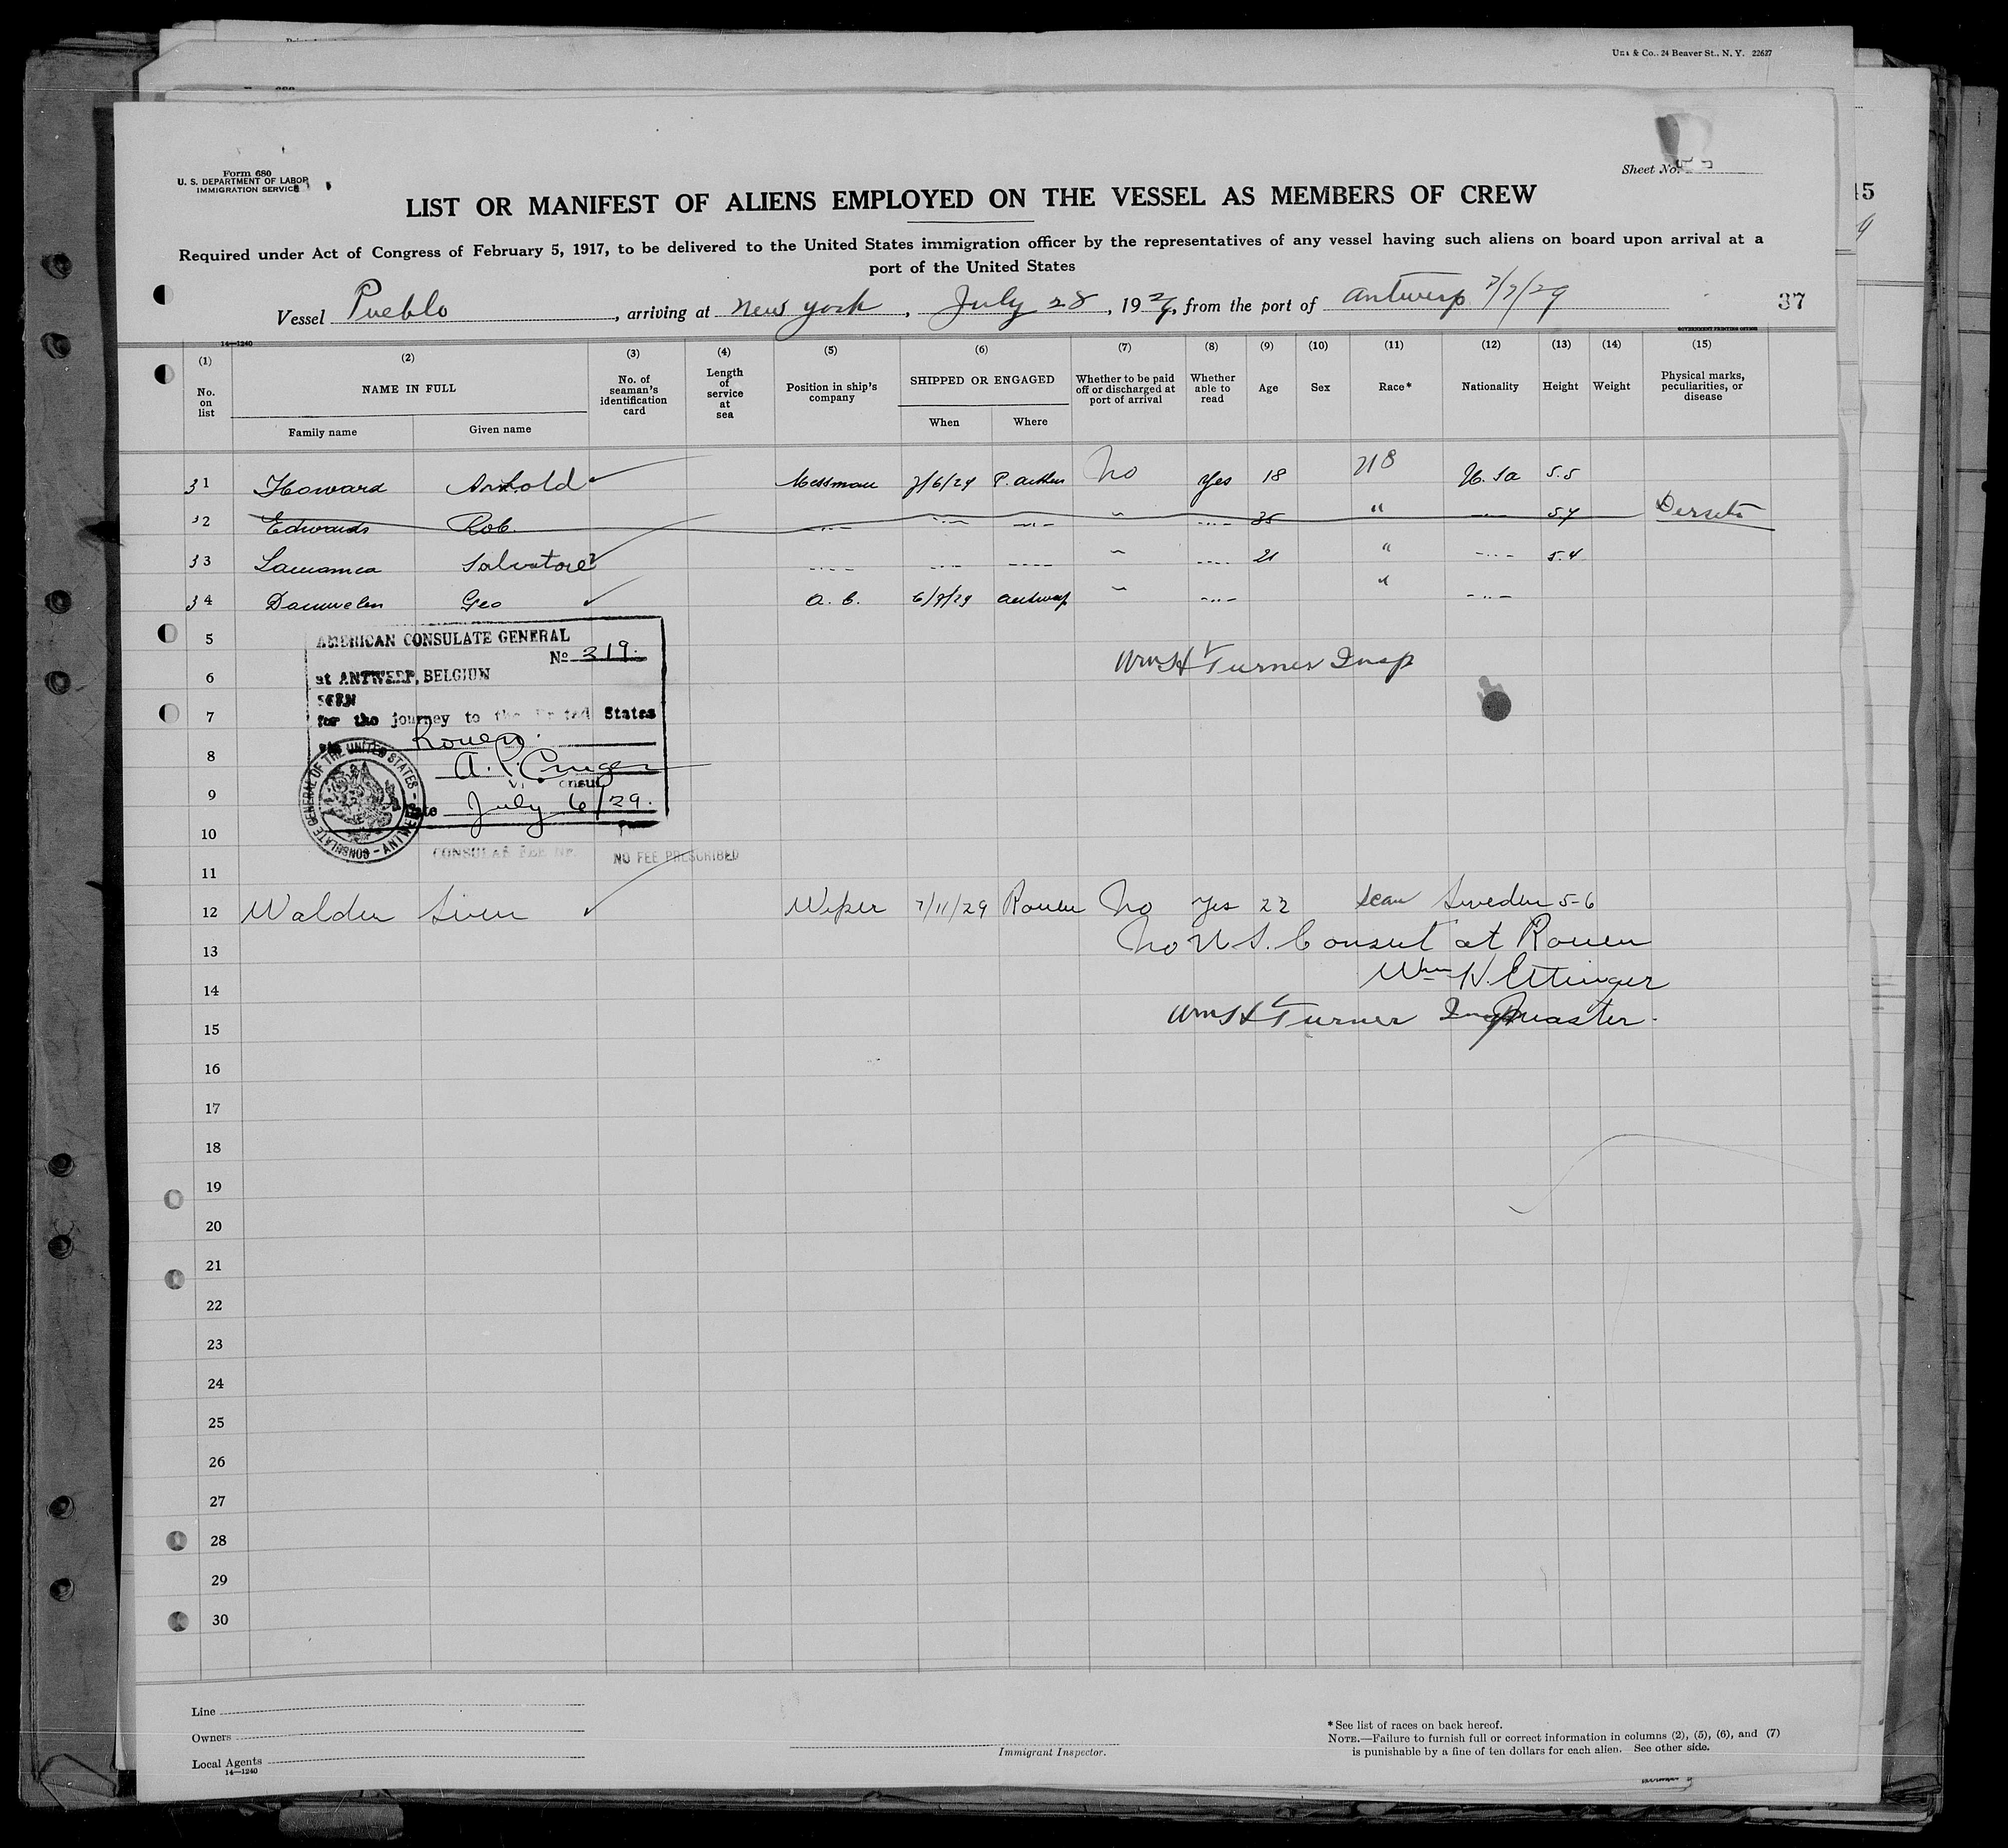 Co., 24 Beaver St., N. Y. 22627
Form 680
U. S. DEPARTMENT OF LABOR
IMMIGRATION SERVICE
Sheet No.
LIST OR MANIFEST OF ALIENS EMPLOYED ON THE VESSEL AS MEMBERS OF CREW
Required under Act of Congress of February 5, 1917, to be delivered to the United States immigration officer by the representatives of any vessel having such aliens on board upon arrival at a
port of the United States
Vessel Pueblo, arriving at New York, July 28, 1929, from the port of Antwerp 7/7/29
37
14—1240
GOVERNMENT PRINTING OFFICE
(1) (2) (3) (4) (5) (6) (7) (8) (9) (10) (11) (12) (13) (14) (15)
No. on list
NAME IN FULL
Family name Given name
No. of seaman's identification card
Length of service at sea
Position in ship's company
SHIPPED OR ENGAGED
When Where
Whether to be paid off or discharged at port of arrival
Whether able to read
Age
Sex
Race*
Nationality
Height
Weight
Physical marks, peculiarities, or disease
31 Howard Arnold Messman No Yes 18 U.Sa 5.5
32 Edwards Rob. -..- -..- -..- " -..- 35 " -..- 5.7
33 Salvatore -..- -..- -..- " -..- 21 " -..- 5.4
34 Geo A. B. 6/7/29 Antwerp " -..- " -..-
5
AMERICAN CONSULATE GENERAL
No 319.
6
at ANTWERP, BELGIUM
Wm H Turner Insp
SEEN
7
for the journey to the United States
Rouen.
8
9
Date July 6/29.
CONSULATE GENERAL OF THE UNITED STATES - ANTWERP -
10
CONSULAR FEE NO. NO FEE PRESCRIBED
11
12 Walden Sven Wiper 7/11/29 Rouen No Yes 22 Scan Sweden 5-6
13 No U S. Consul at Rouen
14 Wm H. Ettinger
15 Wm H Turner Insp Master.
16
17
18
19
20
21
22
23
24
25
26
27
28
29
30
Line
Owners
Local Agents
14—1240
Immigrant Inspector.
* See list of races on back hereof.
NOTE.—Failure to furnish full or correct information in columns (2), (5), (6), and (7)
is punishable by a fine of ten dollars for each alien. See other side.